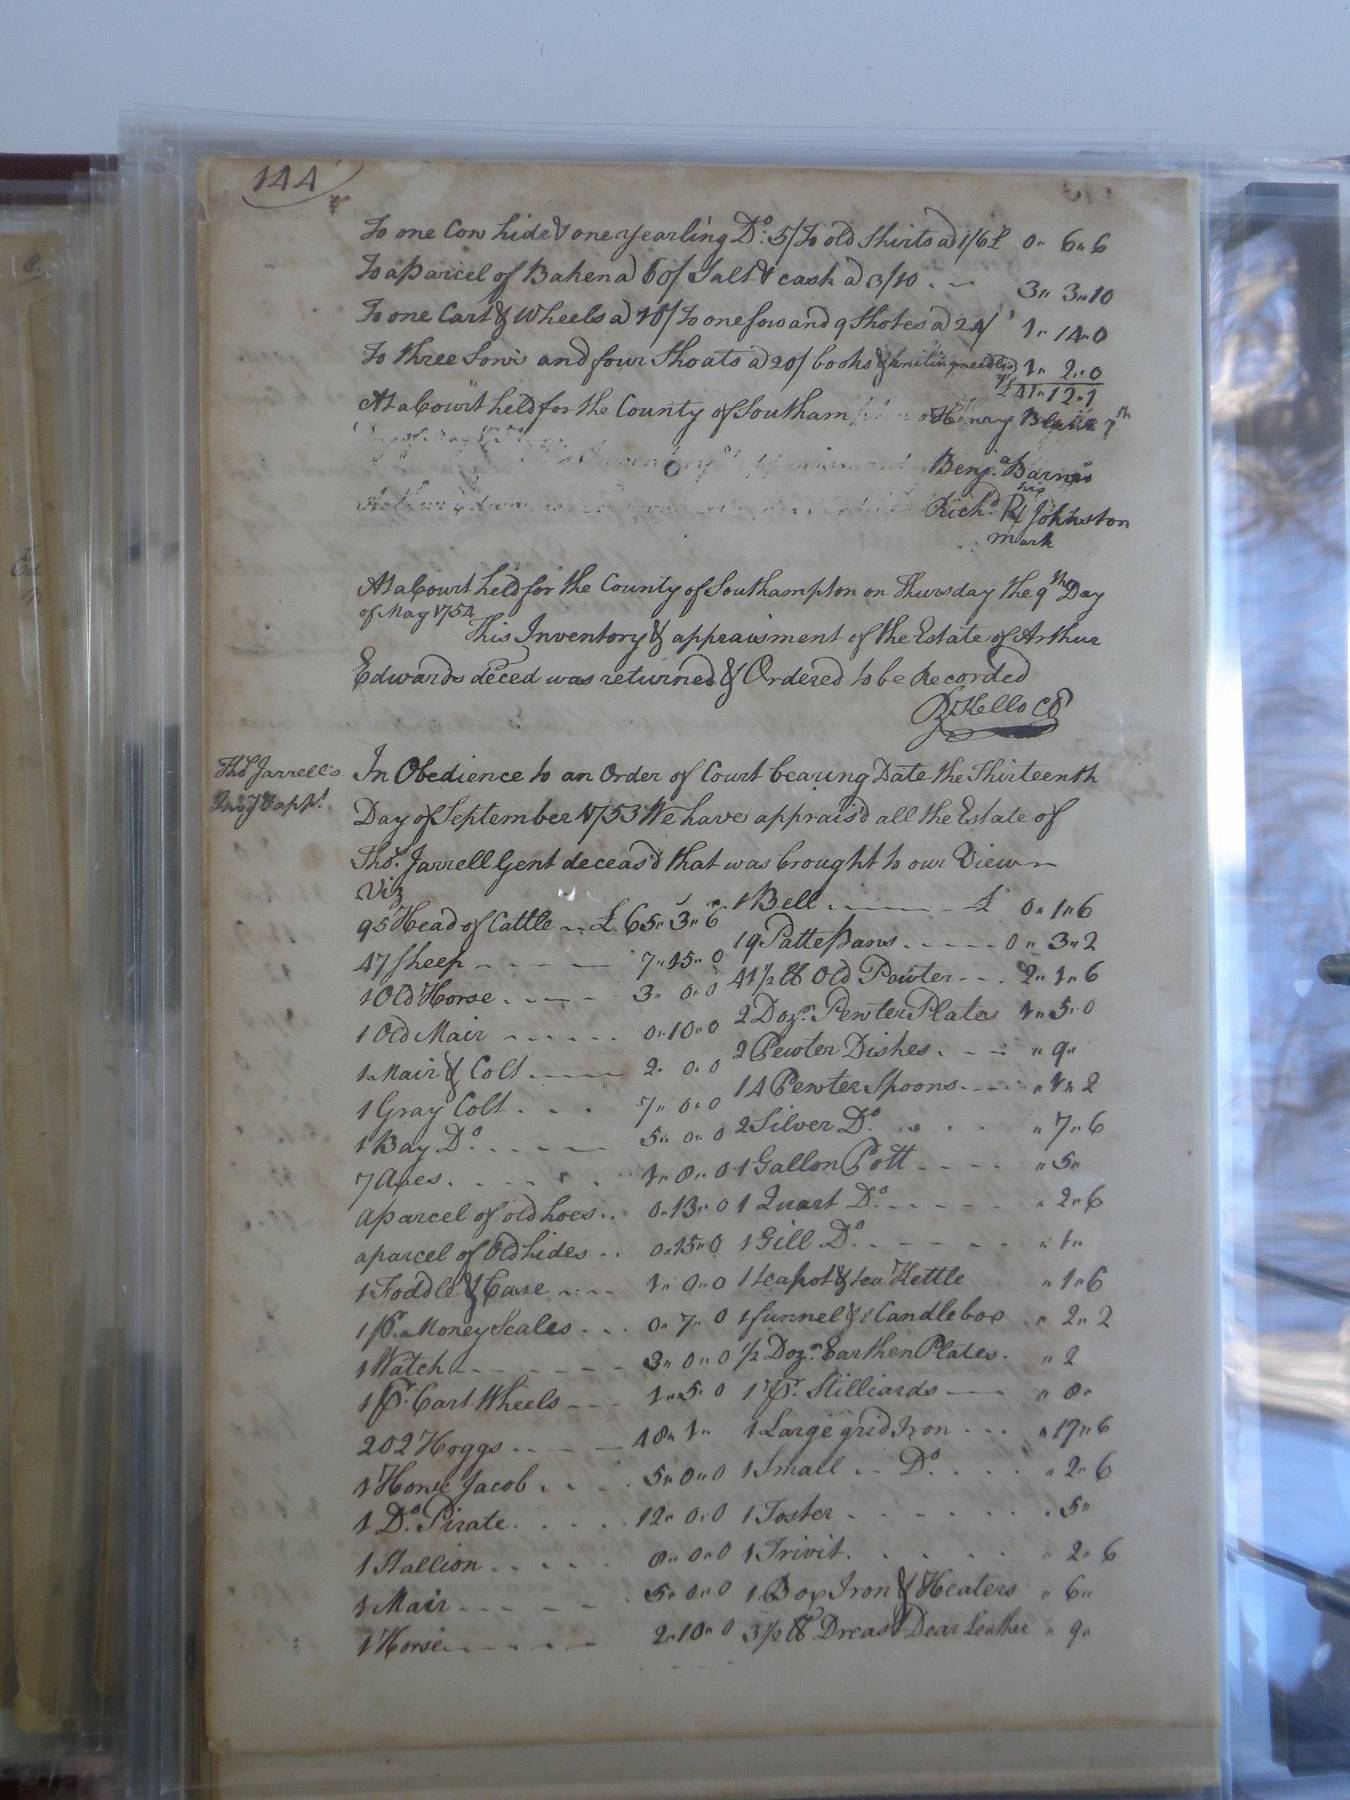 144
To one Cow hide & one yearling Do. 5/ To old Shirts a 1/6 £ 0" 6" 6
To a parcel of Baken a 60/ Salt & cash a 3/10 3" 3" 10
To one Cart & Wheels a 10/ To one sow and 9 Shotes a 24/ 1" 14" 0
To three Sows and four Shoats a 20/ books & knitting needles 1" 2" 0
£41" 12" 1
At a Court held for the County of Southam Henry
Benja. Barnes
his
Richd. R Johnston
mark
At a Court held for the County of Southampton on Thursday the 9th Day
of May 1754
This Inventory & appraisment of the Estate of Arthur
Edwards deced was returned & Ordered to be Recorded
R Kello CC
Thos. Jarrell's
Invy & appt.
In Obedience to an Order of Court bearing Date the Thirteenth
Day of September 1753 We have apprais'd all the Estate of
Thos. Jarrell Gent deceas'd that was brought to our View
Viz
95 Head of Cattle £ 65" 3" 6
47 Sheep 7" 15" 0
1 Old Horse 3" 0" 0
1 Old Mair 0" 10" 0
1 Mair & Colt 2" 0" 0
1 Gray Colt 7" 0" 0
1 Bay Do. 5" 0" 0
7 Axes 1" 0" 0
a parcel of old hoes 0" 13" 0
a parcel of Old hides 0" 15" 0
1 Foddle & Case 1" 0" 0
1 pr. Money Scales 0" 7" 0
1 Watch 3" 0" 0
1 pr. Cart Wheels 1" 5" 0
202 Hoggs 48" 1"
1 Horse Jacob 5" 0" 0
1 Do. Pirate 12" 0" 0
1 Stallion 8" 0" 0
1 Mair 5" 0" 0
1 Horse 2" 10" 0
1 Bell £ 0" 1" 6
19 Patte pans 0" 3" 2
41 1/2 lb Old Pewter 2" 1" 6
2 Dozn. Pewter Plates 1" 5" 0
2 Pewter Dishes " 9"
14 Pewter Spoons " 1" 2
2 Silver Do. " 7" 6
1 Gallon Pott " 5"
1 Quart Do. " 2" 6
1 Gill Do. " 1"
1 teapot & tea Kettle " 1" 6
1 funnel & 1 Candlebox " 2" 2
1/2 Dozn. Earthen Plates " 2
1 pr. Stilliards " 8"
1 Large grid Iron " 17" 6
1 Small Do. " 2" 6
1 Toster " 5"
1 Trivit " 2" 6
1 Box Iron & Heaters " 6"
3 1/2 lb Dreast Dear Leather " 9"